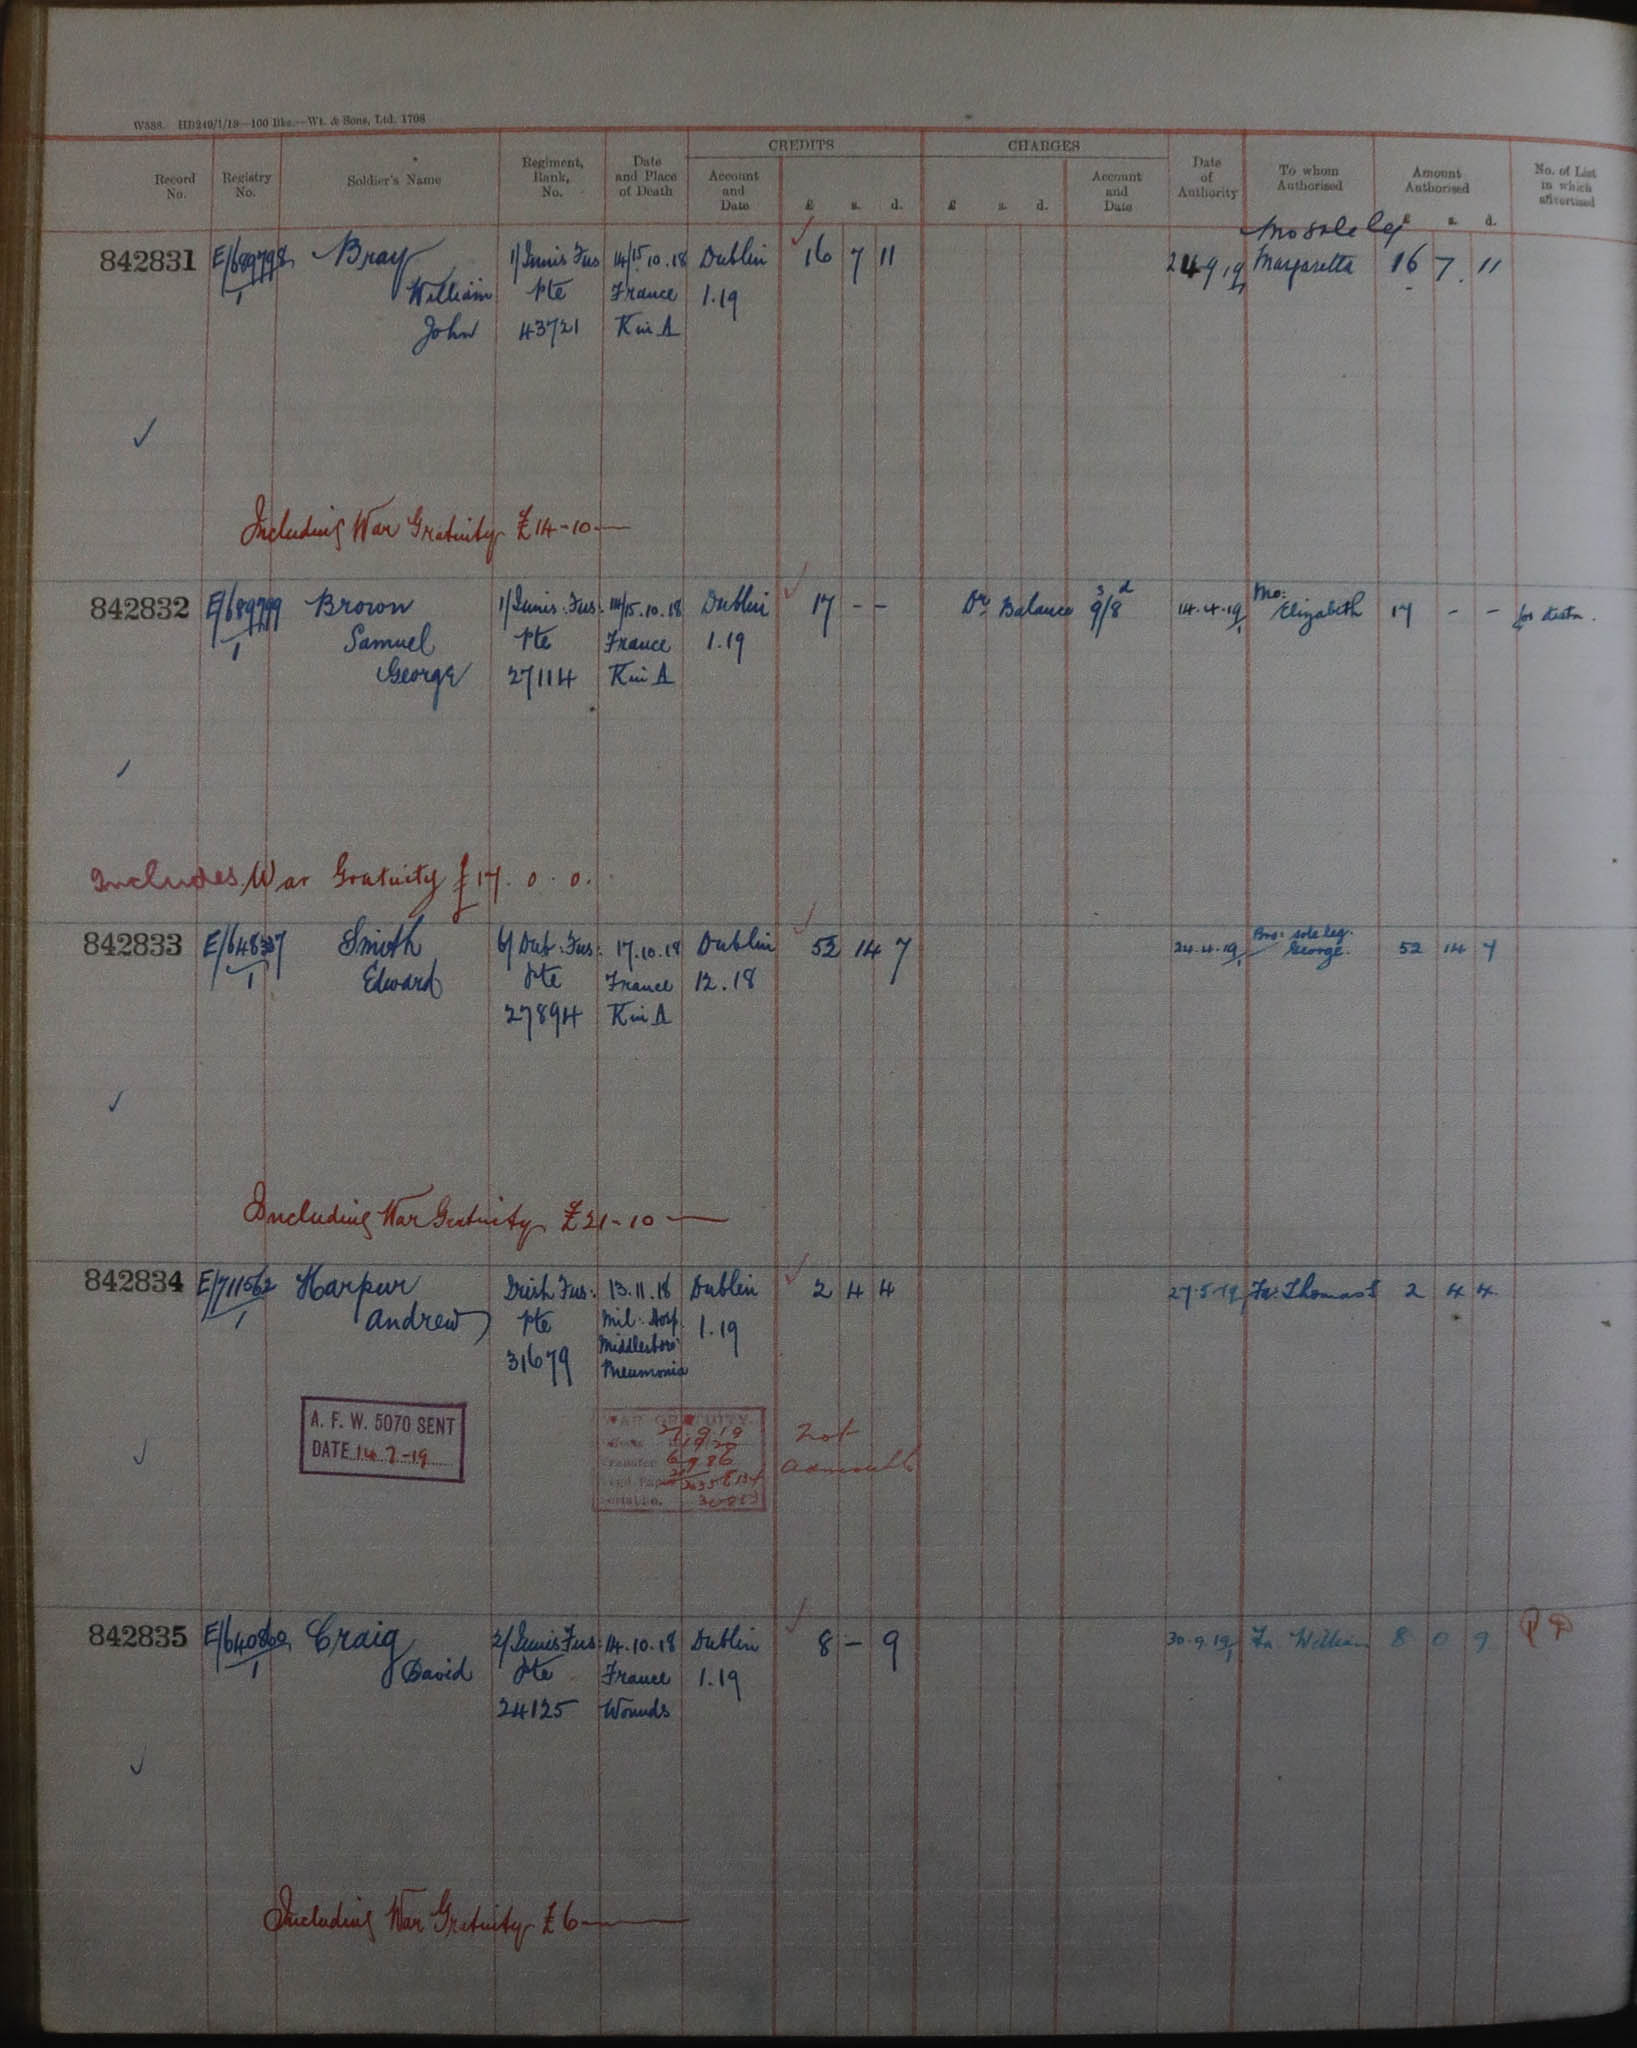 W588. HD249/1/19—100 Bks.—Wt. & Sons, Ltd. 1708
CREDITS CHARGES
Record No. Registry No. Soldier's Name Regiment, Rank, No. Date and Place of Death Account and Date £ s. d. £ s. d. Account and Date Date of Authority To whom Authorised Amount Authorised £ s. d. No. of List in which advertised
Mo sole leg
842831 E/689798 Bray 1/Innis Fus 14/15.10.18 Dublin 16 7 11 24 9 19 Margaretta 16 7 11
1 William Pte France 1.19
John 43721 K in A
Including War Gratuity £14-10-
842832 E/689799 Brown 1/Innis. Fus. 14/15.10.18 Dublin 17 - - Dr. Balance 9s/8d 14.4.19 Mo: Elizabeth 17 - - for distn.
1 Samuel Pte France 1.19
George 27114 K in A
Includes War Gratuity £17. 0. 0.
842833 E/648337 Smith 6/Dub. Fus. 17.10.18 Dublin 52 14 7 24.4.19 Bro: sole leg. George. 52 14 7
1 Edward Pte France 12.18
27894 K in A
Including War Gratuity £21-10-
842834 E/711562 Harpur Irish Fus. 13.11.18 Dublin 2 4 4 27.5.19 Fa: Thomas 2 4 4
1 Andrew Pte Mil. Hosp. 1.19
31679 Middlesboro'
Pneumonia
A. F. W. 5070 SENT
DATE 14 7-19
WAR GRATUITY
Not
Admissible
842835 E/640860 Craig 2/Innis Fus. 14.10.18 Dublin 8 - 9 30.9.19 Fa William 8 0 9
1 David Pte France 1.19
24125 Wounds
Including War Gratuity £6-